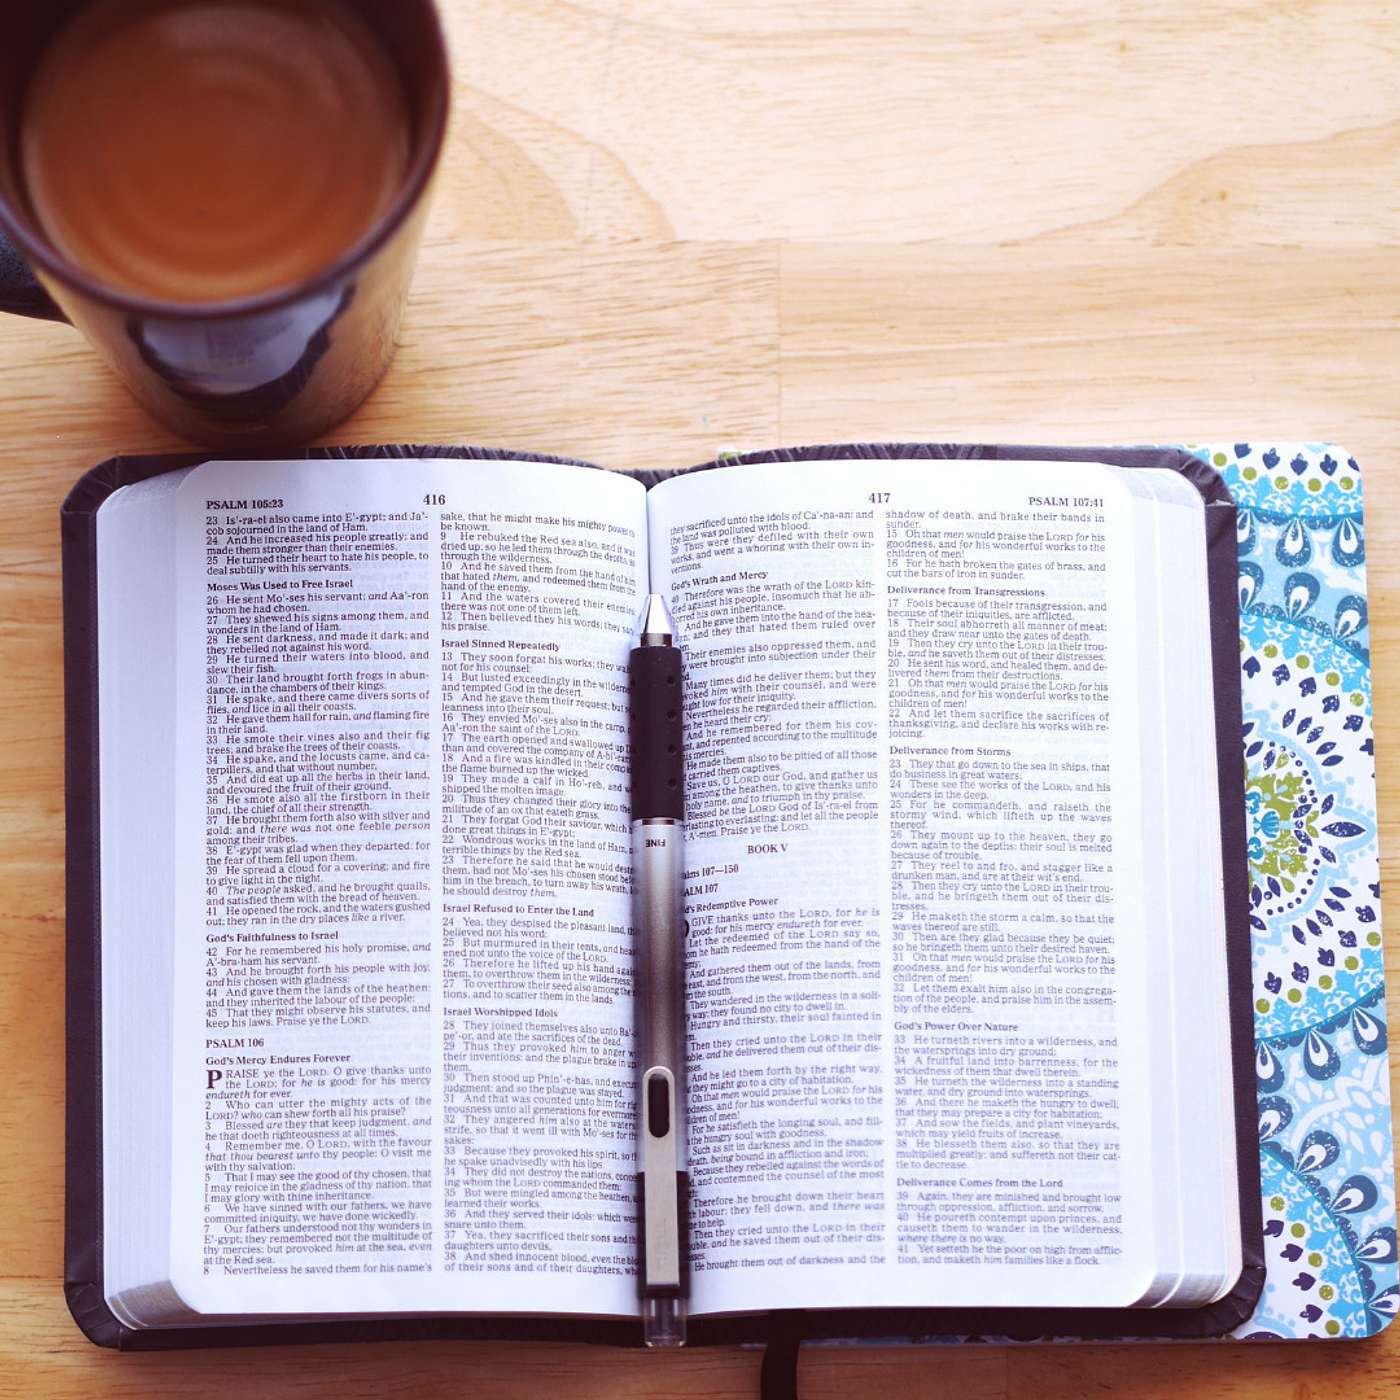 PSALM 105:23
416
23 Is'-ra-el also came into E'-gypt; and Ja'-
cob sojourned in the land of Ham.
24 And he increased his people greatly; and
made them stronger than their enemies.
25 He turned their heart to hate his people, to
deal subtilly with his servants.
Moses Was Used to Free Israel
26 He sent Mo'-ses his servant; and Aa'-ron
whom he had chosen.
27 They shewed his signs among them, and
wonders in the land of Ham.
28 He sent darkness, and made it dark; and
they rebelled not against his word.
29 He turned their waters into blood, and
slew their fish.
30 Their land brought forth frogs in abun-
dance, in the chambers of their kings.
31 He spake, and there came divers sorts of
flies, and lice in all their coasts.
32 He gave them hail for rain, and flaming fire
in their land.
33 He smote their vines also and their fig
trees; and brake the trees of their coasts.
34 He spake, and the locusts came, and ca-
terpillers, and that without number,
35 And did eat up all the herbs in their land,
and devoured the fruit of their ground.
36 He smote also all the firstborn in their
land, the chief of all their strength.
37 He brought them forth also with silver and
gold: and there was not one feeble person
among their tribes.
38 E'-gypt was glad when they departed: for
the fear of them fell upon them.
39 He spread a cloud for a covering; and fire
to give light in the night.
40 The people asked, and he brought quails,
and satisfied them with the bread of heaven.
41 He opened the rock, and the waters gushed
out; they ran in the dry places like a river.
God's Faithfulness to Israel
42 For he remembered his holy promise, and
A'-bra-ham his servant.
43 And he brought forth his people with joy,
and his chosen with gladness:
44 And gave them the lands of the heathen:
and they inherited the labour of the people;
45 That they might observe his statutes, and
keep his laws. Praise ye the LORD.
PSALM 106
God's Mercy Endures Forever
PRAISE ye the LORD. O give thanks unto
the LORD; for he is good: for his mercy
endureth for ever.
2 Who can utter the mighty acts of the
LORD? who can shew forth all his praise?
3 Blessed are they that keep judgment, and
he that doeth righteousness at all times.
4 Remember me, O LORD, with the favour
that thou bearest unto thy people: O visit me
with thy salvation;
5 That I may see the good of thy chosen, that
I may rejoice in the gladness of thy nation, that
I may glory with thine inheritance.
6 We have sinned with our fathers, we have
committed iniquity, we have done wickedly.
7 Our fathers understood not thy wonders in
E'-gypt; they remembered not the multitude of
thy mercies; but provoked him at the sea, even
at the Red sea.
8 Nevertheless he saved them for his name's
sake, that he might make his mighty power to
be known.
9 He rebuked the Red sea also, and it was
dried up: so he led them through the depths, as
through the wilderness.
10 And he saved them from the hand of him
that hated them, and redeemed them from the
hand of the enemy.
11 And the waters covered their enemies:
there was not one of them left.
12 Then believed they his words; they sang
his praise.
Israel Sinned Repeatedly
13 They soon forgat his works; they
not for his counsel:
14 But lusted exceedingly in the
and tempted God in the desert.
15 And he gave them their request; but
leanness into their soul.
16 They envied Mo'-ses also in the camp,
Aa'-ron the saint of the LORD.
17 The earth opened and swallowed up
than and covered the company of
18 And a fire was kindled in their
the flame burned up the wicked.
19 They made a calf in Ho'-reb, and
shipped the molten image.
20 Thus they changed their glory into the
militude of an ox that eateth grass.
21 They forgat God their saviour, which
done great things in E'-gypt;
22 Wondrous works in the land of Ham,
terrible things by the Red sea.
23 Therefore he said that he would
them, had not Mo'-ses his chosen stood
him in the breach, to turn away his wrath,
he should destroy them.
Israel Refused to Enter the Land
24 Yea, they despised the pleasant land,
believed not his word:
25 But murmured in their tents, and
ened not unto the voice of the LORD.
26 Therefore he lifted up his hand
them, to overthrow them in the wilderness:
27 To overthrow their seed also among the
tions, and to scatter them in the lands.
Israel Worshipped Idols
28 They joined themselves also unto
pe'-or, and ate the sacrifices of the dead.
29 Thus they provoked him to anger
their inventions: and the plague brake in
them.
30 Then stood up Phin'-e-has, and
judgment: and so the plague was stayed.
31 And that was counted unto him for
teousness unto all generations for evermore.
32 They angered him also at the waters
strife, so that it went ill with Mo'-ses for
sakes:
33 Because they provoked his spirit, so
he spake unadvisedly with his lips.
34 They did not destroy the nations,
ing whom the LORD commanded them:
35 But were mingled among the heathen,
learned their works.
36 And they served their idols: which
snare unto them.
37 Yea, they sacrificed their sons and
daughters unto devils,
38 And shed innocent blood, even the
of their sons and of their daughters,
417
PSALM 107:41
they sacrificed unto the idols of Ca'-na-an: and
the land was polluted with blood.
39 Thus were they defiled with their own
works, and went a whoring with their own in-
ventions.
God's Wrath and Mercy
40 Therefore was the wrath of the LORD kin-
dled against his people, insomuch that he ab-
horred his own inheritance.
And he gave them into the hand of the hea-
and they that hated them ruled over
Their enemies also oppressed them, and
were brought into subjection under their
Many times did he deliver them; but they
him with their counsel, and were
low for their iniquity.
Nevertheless he regarded their affliction,
he heard their cry:
And he remembered for them his cov-
and repented according to the multitude
mercies.
He made them also to be pitied of all those
carried them captives.
Save us, O LORD our God, and gather us
among the heathen, to give thanks unto
holy name, and to triumph in thy praise.
Blessed be the LORD God of Is'-ra-el from
to everlasting: and let all the people
A'-men. Praise ye the LORD.
BOOK V
107—150
107
Redemptive Power
GIVE thanks unto the LORD, for he is
good: for his mercy endureth for ever.
Let the redeemed of the LORD say so,
he hath redeemed from the hand of the
And gathered them out of the lands, from
east, and from the west, from the north, and
the south.
They wandered in the wilderness in a soli-
way; they found no city to dwell in.
Hungry and thirsty, their soul fainted in
Then they cried unto the LORD in their
and he delivered them out of their dis-
And he led them forth by the right way,
they might go to a city of habitation.
Oh that men would praise the LORD for his
and for his wonderful works to the
of men!
For he satisfieth the longing soul, and fill-
the hungry soul with goodness.
Such as sit in darkness and in the shadow
death, being bound in affliction and iron;
Because they rebelled against the words of
and contemned the counsel of the most
Therefore he brought down their heart
labour; they fell down, and there was
to help.
Then they cried unto the LORD in their
and he saved them out of their dis-
He brought them out of darkness and the
shadow of death, and brake their bands in
sunder.
15 Oh that men would praise the LORD for his
goodness, and for his wonderful works to the
children of men!
16 For he hath broken the gates of brass, and
cut the bars of iron in sunder.
Deliverance from Transgressions
17 Fools because of their transgression, and
because of their iniquities, are afflicted.
18 Their soul abhorreth all manner of meat;
and they draw near unto the gates of death.
19 Then they cry unto the LORD in their trou-
ble, and he saveth them out of their distresses.
20 He sent his word, and healed them, and de-
livered them from their destructions.
21 Oh that men would praise the LORD for his
goodness, and for his wonderful works to the
children of men!
22 And let them sacrifice the sacrifices of
thanksgiving, and declare his works with re-
joicing.
Deliverance from Storms
23 They that go down to the sea in ships, that
do business in great waters;
24 These see the works of the LORD, and his
wonders in the deep.
25 For he commandeth, and raiseth the
stormy wind, which lifteth up the waves
thereof.
26 They mount up to the heaven, they go
down again to the depths: their soul is melted
because of trouble.
27 They reel to and fro, and stagger like a
drunken man, and are at their wit's end.
28 Then they cry unto the LORD in their trou-
ble, and he bringeth them out of their dis-
tresses.
29 He maketh the storm a calm, so that the
waves thereof are still.
30 Then are they glad because they be quiet;
so he bringeth them unto their desired haven.
31 Oh that men would praise the LORD for his
goodness, and for his wonderful works to the
children of men!
32 Let them exalt him also in the congrega-
tion of the people, and praise him in the assem-
bly of the elders.
God's Power Over Nature
33 He turneth rivers into a wilderness, and
the watersprings into dry ground;
34 A fruitful land into barrenness, for the
wickedness of them that dwell therein.
35 He turneth the wilderness into a standing
water, and dry ground into watersprings.
36 And there he maketh the hungry to dwell,
that they may prepare a city for habitation;
37 And sow the fields, and plant vineyards,
which may yield fruits of increase.
38 He blesseth them also, so that they are
multiplied greatly; and suffereth not their cat-
tle to decrease.
Deliverance Comes from the Lord
39 Again, they are minished and brought low
through oppression, affliction, and sorrow.
40 He poureth contempt upon princes, and
causeth them to wander in the wilderness,
where there is no way.
41 Yet setteth he the poor on high from afflic-
tion, and maketh him families like a flock.
FINE